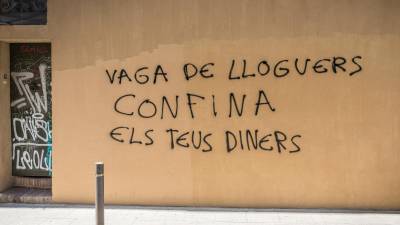 VAGA DE LLOGUERS
CONFINA
ELS TEUS DINERS